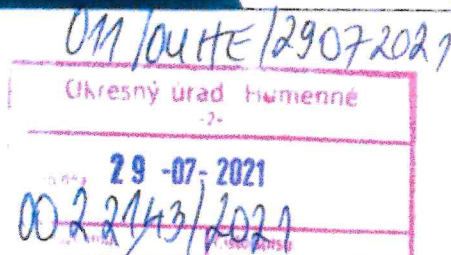 011/OUHE/29072021
Okresný úrad Humenné
-2-
29 -07- 2021
002 2143/2021